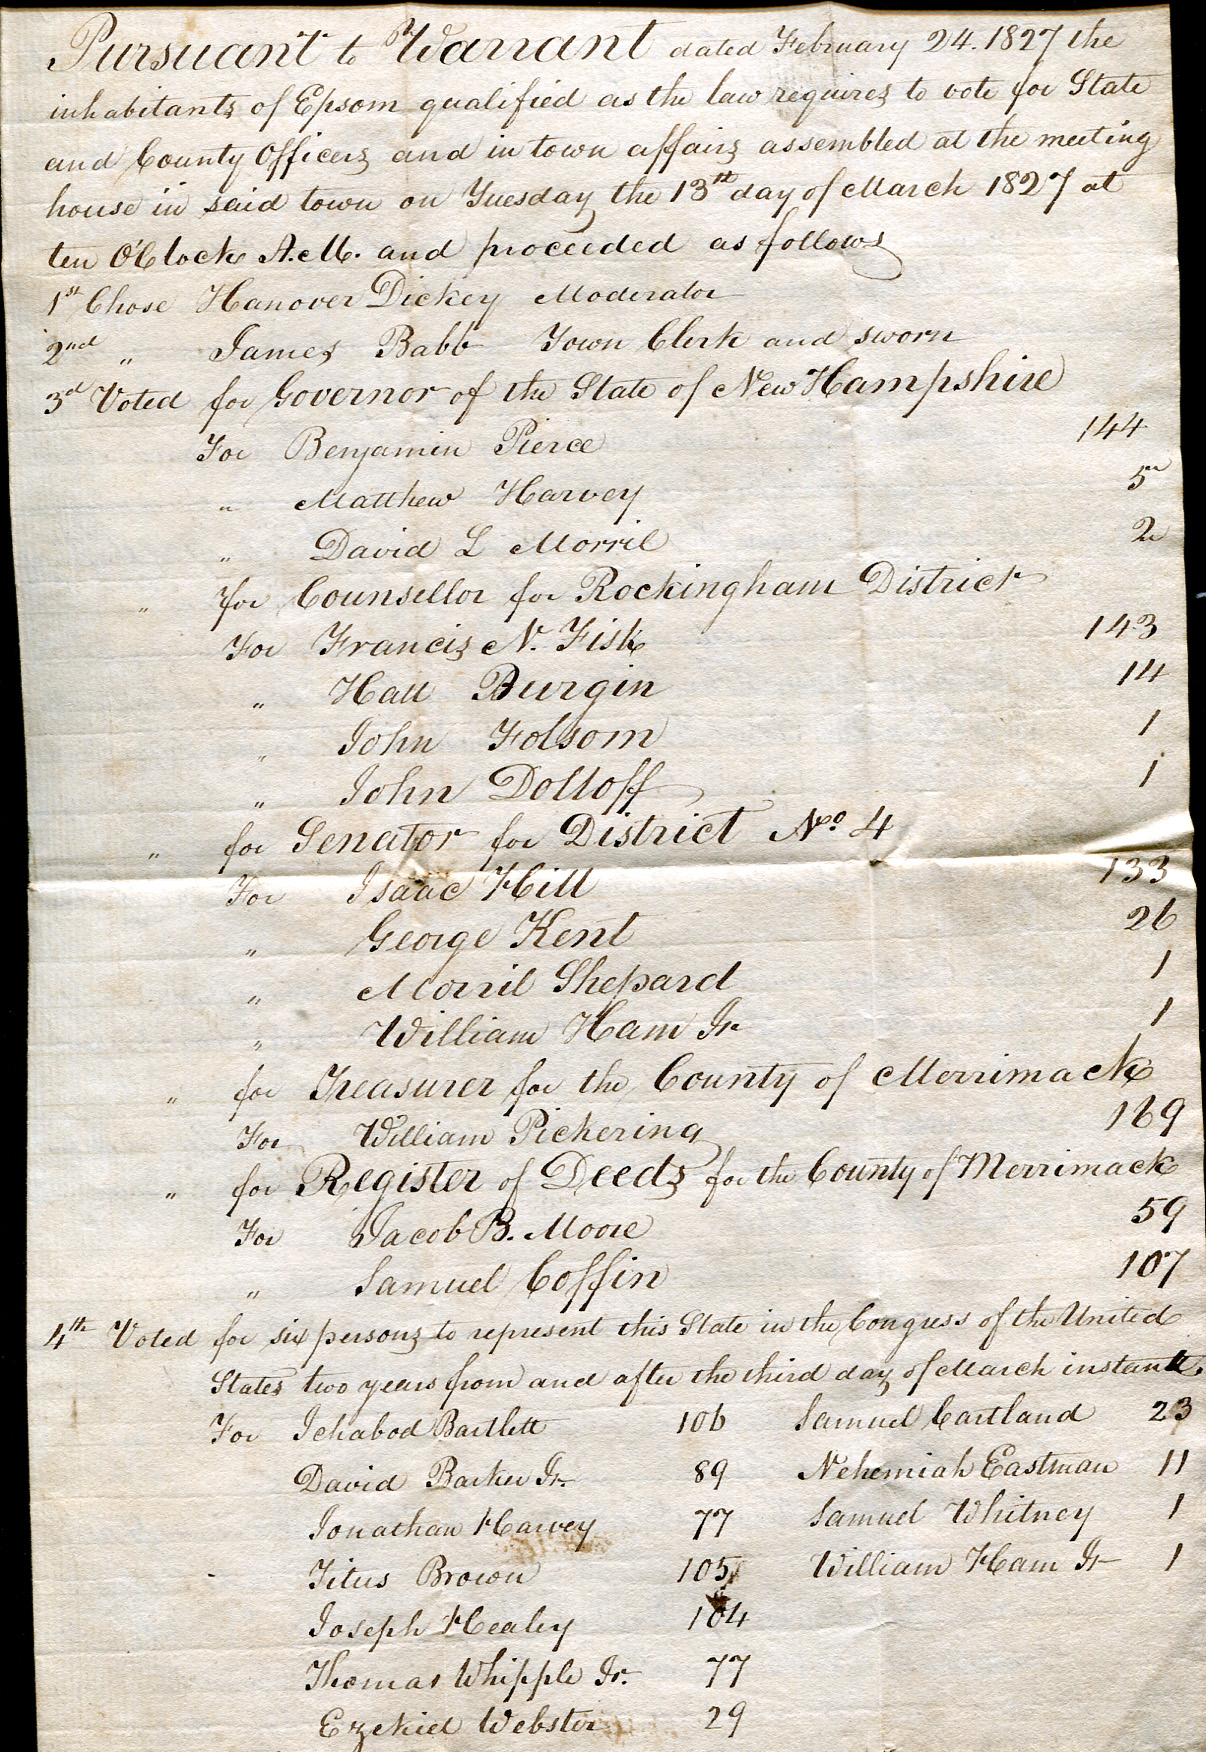 Pursuant to Warrant dated February 24. 1827 the
inhabitants of Epsom qualified as the law requires to vote for State
and County Officers and in town affairs assembled at the meeting
house in said town on Tuesday the 13th day of March 1827 at
ten O'Clock A.M. and proceeded as follows
1st Chose Hanover Dickey Moderator
2nd " James Babb Town Clerk and sworn
3d Voted for Governor of the State of New Hampshire
For Benjamin Pierce 144
" Matthew Harvey 5
" David L Morril 2
" for Counsellor for Rockingham District
For Francis N. Fisk 143
" Hall Burgin 14
" John Folsom 1
" John Dolloff 1
" for Senator for District No. 4
For Isaac Hill 133
" George Kent 26
" Morril Shepard 1
" William Ham Jr 1
" for Treasurer for the County of Merrimack
For William Pickering 169
" for Register of Deeds for the County of Merrimack
For Jacob B. Moore 59
" Samuel Coffin 107
4th Voted for six persons to represent this State in the Congress of the United
States two years from and after the third day of March instant.
For Ichabod Bartlett 106 Samuel Cartland 23
David Barker Jr. 89 Nehemiah Eastman 11
Jonathan Harvey 77 Samuel Whitney 1
Titus Brown 105 William Ham Jr 1
Joseph Healey 104
Thomas Whipple Jr. 77
Ezekiel Webster 29